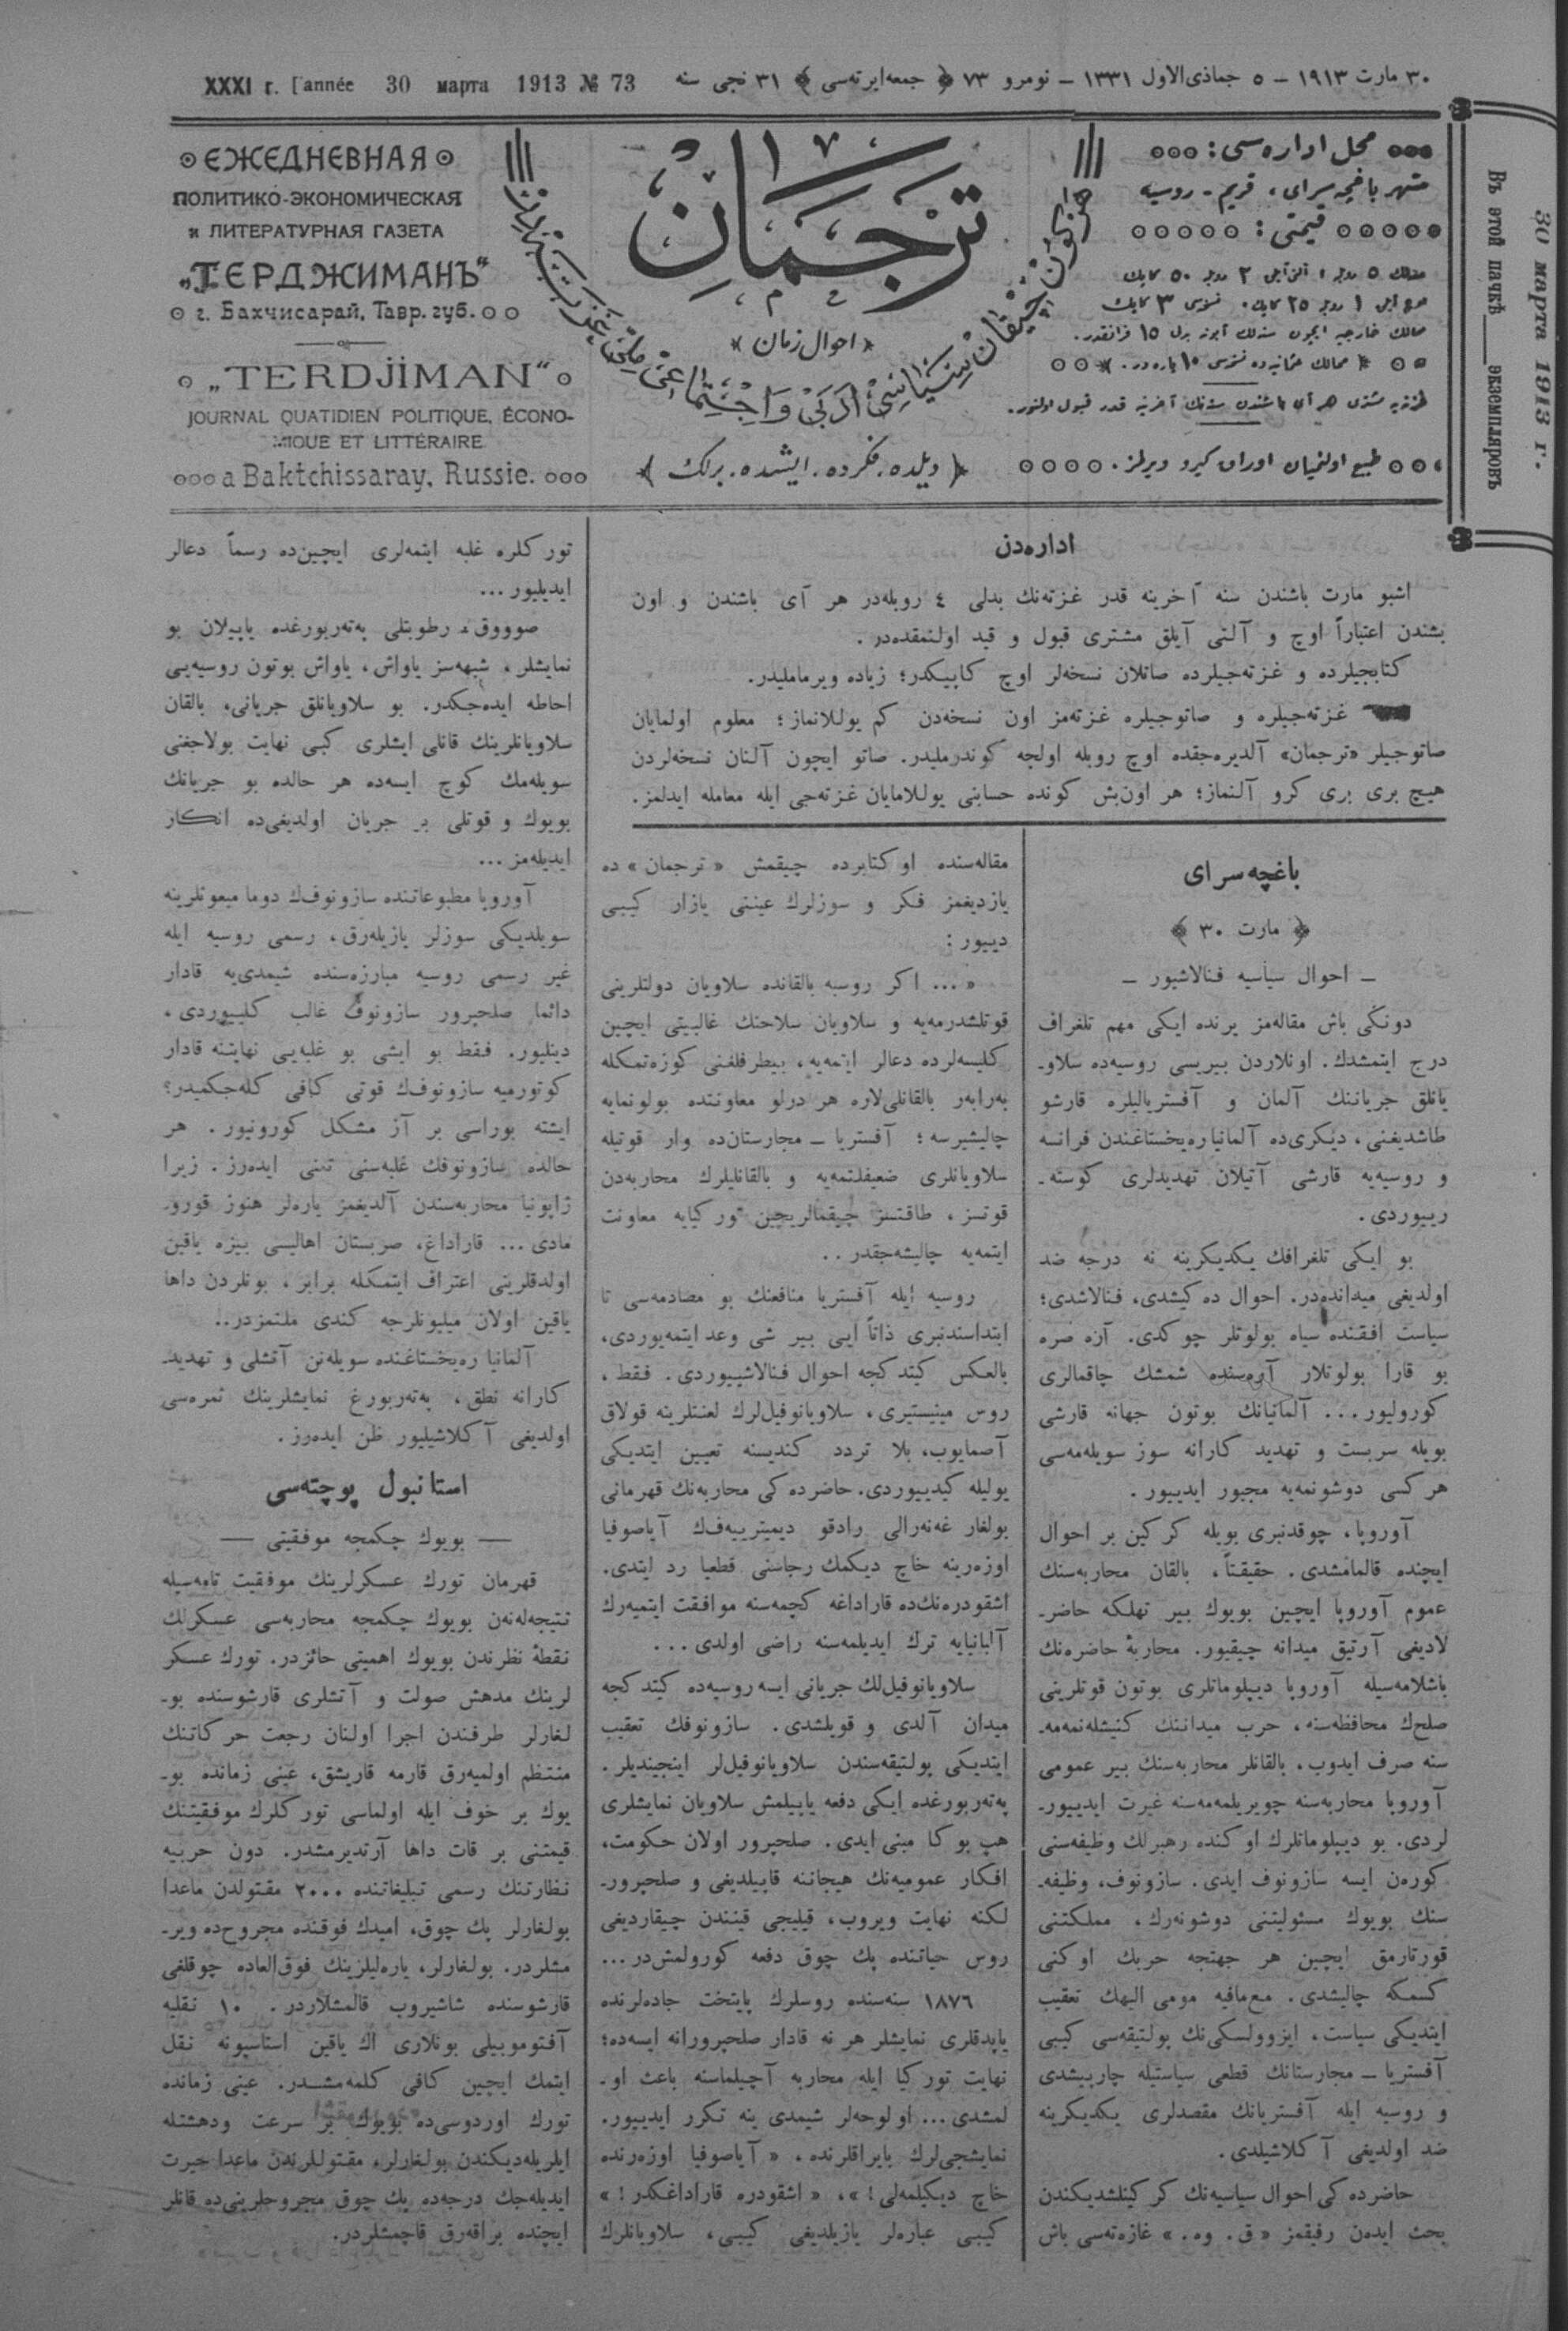 XXXI г. l'année 30 марта 1913 № 73
٣٠ مارت ١٩١٣ – ٥ جماذى‌الاول ١٣٣١ – نومرو ٧٣ ﴿ جمعه‌ايرته‌سى ﴾ ٣١ نجى سنه
ЕЖЕДНЕВНАЯ
ПОЛИТИКО-ЭКОНОМИЧЕСКАЯ
и ЛИТЕРАТУРНАЯ ГАЗЕТА
„ТЕРДЖИМАНЪ“
г. Бахчисарай, Тавр. губ.
„TERDJIMAN“
JOURNAL QUATIDIEN POLITIQUE, ÉCONO-
MIQUE ET LITTÉRAIRE
a Baktchissaray, Russie.
ترجمان
﴿ احوال زمان ﴾
هر كون چيقان سياسى ادبى و اجتماعى ملى غزته‌در
﴿ ديلده . فكرده . ايشده . برلك ﴾
محل اداره‌سى :
شهر باغچه‌سراى ، قريم - روسيه
قيمتى :
سنه‌لك ٥ روبله ، آلتى آيلق ٣ روبله ٥٠ كاپك
اوچ آيلق ١ روبله ٢٥ كاپك . نسخه‌سى ٣ كاپك
ممالك خارجيه ايچون سنه‌لك آبونه بدلى ١٥ فرانقدر .
ممالك عثمانيه‌ده نسخه‌سى ١٠ پاره‌در .
غزته‌يه مشترى هر آى باشندن سنه‌نك آخرينه قدر قبول اولنور .
طبع اولنميان اوراق كيرو ويرلمز .
Въ этой пачкѣ ____ экземпляровъ
30 марта 1913 г.
اداره‌دن
اشبو مارت باشندن سنه آخرينه قدر غزته‌نك بدلى ٤ روبله‌در هر آى باشندن و اون
بشندن اعتباراً اوچ و آلتى آيلق مشترى قبول و قيد اولنمقده‌در .
كتابجيلرده و غزته‌جيلرده صاتلان نسخه‌لر اوچ كاپيكدر؛ زياده ويرمامليدر .
غزته‌جيلره و صاتوجيلره غزته‌مز اون نسخه‌دن كم يوللانماز ؛ معلوم اولمايان
صاتوجيلر «ترجمان» آلديره‌جقده اوچ روبله اولجه كوندرمليدر . صاتو ايچون آلنان نسخه‌لردن
هيچ برى برى كرو آلنماز ؛ هر اون‌بش كونده حسابنى يوللامايان غزته‌جى ايله معامله ايدلمز .
باغچه سراى
﴿ مارت ٣٠ ﴾
ـ احوال سياسيه فنالاشيور ـ
دونكى باش مقاله‌مز يرنده ايكى مهم تلغراف
درج ايتمشدك . اونلاردن بيريسى روسيه‌ده سلاو-
يانلق جرياننك آلمان و آفستريالیلره قارشو
طاشديغنى ، ديكرى‌ده آلمانيا ره‌يخستاغندن فرانسه
و روسيه‌يه قارشى آتيلان تهديدلرى كوسته-
رييوردى .
بو ايكى تلغرافك يكديكرينه نه درجه ضد
اولديغى ميدانده‌در . احوال ده كيشدى ، فنالاشدى ؛
سياست افقنده سياه بولوتلر چوكدى . آره صره
بو قارا بولوتلار آره‌سنده شمشك چاقمالرى
كوروليور ... آلمانيانك بوتون جهانه قارشى
بويله سربست و تهديد كارانه سوز سويله‌مه‌سى
هر كسى دوشونمه‌يه مجبور ايدييور .
آوروپا ، چوقدنبرى بويله كركين بر احوال
ايچنده قالمامشدى . حقيقتاً ، بالقان محاربه‌سنك
عموم آوروپا ايچين بويوك بير تهلكه حاضر-
لاديغى آرتيق ميدانه چيقيور . محاربۀ حاضره‌نك
باشلامه‌سيله آوروپا ديپلوماتلرى بوتون قوتلرينى
صلحك محافظه‌سنه ، حرب ميداننك كنيشله‌نمه‌مه-
سنه صرف ايدوب ، بالقانلر محاربه‌سنك بير عمومى
آوروپا محاربه‌سنه چويريلمه‌مه‌سنه غيرت ايدييور-
لردى . بو ديپلوماتلرك اوكنده رهبرلك وظيفه‌سنى
كوره‌ن ايسه سازونوف ايدى . سازونوف ، وظيفه-
سنك بويوك مسئوليتنى دوشونه‌رك ، مملكتنى
قورتارمق ايچين هر جهتجه حربك اوكنى
كسمكه چاليشدى . مع‌مافيه مومى اليهك تعقيب
ايتديكى سياست ، ايزوولسكى‌نك پولتيقه‌سى كيبى
آفستريا ـ مجارستانك قطعى سياستيله چارپيشدى
و روسيه ايله آفستريانك مقصدلرى يكديكرينه
ضد اولديغى آكلاشيلدى .
حاضرده كى احوال سياسيه‌نك كركينلشديكندن
بحث ايدەن رفيقمز « ق . وه . » غازه‌ته‌سى باش
مقاله‌سنده اوكتابرده چيقمش « ترجمان » ده
يازديغمز فكر و سوزلرك عينتى يازار كيبى
دييور :
« ... اكر روسيه بالقانده سلاويان دولتلرينى
قوتلشدرمه‌يه و سلاويان سلاحنك غالبيتى ايچين
كليسه‌لرده دعالر ايتمه‌يه ، بيطرفلغنى كوزه‌تمكله
به‌رابه‌ر بالقانلى‌لاره هر درلو معاونتده بولونمايه
چاليشيرسه ؛ آفستريا ـ مجارستان‌ده وار قوتيله
سلاويانلرى ضعيفلتمه‌يه و بالقانليلرك محاربه‌دن
قوتسز ، طاقتسز چيقمالريچين توركيايه معاونت
ايتمه‌يه چاليشه‌جقدر ..
روسيه ايله آفستريا منافعنك بو مصادمه‌سى تا
ابتداسندنبرى ذاتاً ايى بير شى وعد ايتمه‌يوردى ،
بالعكس كيتدكجه احوال فنالاشييوردى . فقط ،
روس مينيسترى ، سلاويانوفيل‌لرك لعنتلرينه قولاق
آصمايوب ، بلا تردد كنديسنه تعيين ايتديكى
يوليله كيدييوردى . حاضرده كى محاربه‌نك قهرمانى
بولغار غه‌نه‌رالى رادقو ديميترييه‌ف‌ك آياصوفيا
اوزه‌رينه خاچ ديكمك رجاسنى قطعيا رد ايتدى .
اشقودره‌نك‌ده قاراداغه كچمه‌سنه موافقت ايتميه‌رك
آلبانيايه ترك ايديلمه‌سنه راضى اولدى ...
سلاويانوفيل‌لك جريانى ايسه روسيه‌ده كيتدكجه
ميدان آلدى و قويلشدى . سازونوفك تعقيب
ايتديكى پولتيقه‌سندن سلاويانوفيل‌لر اينجينديلر .
په‌ته‌ربورغده ايكى دفعه ياپيلمش سلاويان نمايشلرى
هپ بوكا مبنى ايدى . صلحپرور اولان حكومت ،
افكار عموميه‌نك هيجاننه قاپيلديغى و صلحپرور-
لكنه نهايت ويروب ، قيليجى قينندن چيقارديغى
روس حياتنده پك چوق دفعه كورولمش‌در ...
١٨٧٦ سنه‌سنده روسلرك پايتخت جاده‌لرنده
ياپدقلرى نمايشلر هر نه قادار صلحپرورانه ايسه‌ده ؛
نهايت توركيا ايله محاربه آچيلماسنه باعث او-
لمشدى ... او لوحه‌لر شيمدى ينه تكرر ايدييور .
نمايشجى‌لرك بايراقلرنده ، « آياصوفيا اوزه‌رنده
خاچ ديكلمه‌لى ! » ، « اشقودره قاراداغكدر ! »
كيبى عباره‌لر يازيلديغى كيبى ، سلاويانلرك
توركلره غلبه ايتمه‌لرى ايچين‌ده رسماً دعالر
ايديليور ...
صوووق ، رطوبتلى په‌ته‌ربورغده ياپيلان بو
نمايشلر ، شبهه‌سز ياواش ، ياواش بوتون روسيه‌يى
احاطه ايده‌جكدر . بو سلاويانلق جريانى ، بالقان
سلاويانلرينك قانلى ايشلرى كبى نهايت بولاجغنى
سويله‌مك كوچ ايسه‌ده هر حالده بو جريانك
بويوك و قوتلى بر جريان اولديغى‌ده انكار
ايديله‌مز ...
آوروپا مطبوعاتنده سازونوف‌ك دوما مبعوثلرينه
سويلديكى سوزلر يازيله‌رق ، رسمى روسيه ايله
غير رسمى روسيه مبارزه‌سنده شيمدى‌يه قادار
دائما صلحپرور سازونوف غالب كلييوردى ،
دينليور . فقط بو ايشى بو غلبه‌يى نهايتنه قادار
كوتورميه سازونوف‌ك قوتى كافى كله‌جكميدر ؟
ايشته بوراسى بر آز مشكل كورونيور . هر
حالده سازونوفك غلبه‌سنى تمنى ايده‌رز . زيرا
ژاپونيا محاربه‌سندن آلديغمز ياره‌لر هنوز قورو-
مادى ... قاراداغ ، صربستان اهاليسى بيزه ياقين
اولدقلرينى اعتراف ايتمكله برابر ، بونلردن داها
ياقين اولان ميليونلرجه كندى ملتمزدر..
آلمانيا ره‌يخستاغنده سويله‌نن آتشلى و تهديد-
كارانه نطق ، په‌ته‌ربورغ نمايشلرينك ثمره‌سى
اولديغى آكلاشيليور ظن ايده‌رز .
استانبول پوچته‌سى
— بويوك چكمجه موفقيتى —
قهرمان تورك عسكرلرينك موفقيت تامه‌سيله
نتيجه‌له‌نه‌ن بويوك چكمجه محاربه‌سى عسكرلك
نقطۀ نظرندن بويوك اهميتى حائزدر . تورك عسكر
لرينك مدهش صولت و آتشلرى قارشوسنده بو-
لغارلر طرفندن اجرا اولنان رجعت حركاتنك
منتظم اولميه‌رق قارمه قاريشق ، عينى زمانده بو-
يوك بر خوف ايله اولماسى توركلرك موفقيتنك
قيمتنى بر قات داها آرتديرمشدر . دون حربيه
نظارتنك رسمى تبليغاتنده ٢٠٠٠ مقتولدن ماعدا
بولغارلر پك چوق ، اميدك فوقنده مجروح‌ده وير-
مشلردر . بولغارلر ، ياره‌ليلرينك فوق‌العاده چوقلغى
قارشوسنده شاشيروب قالمشلاردر . ١٠ نقليه
آفتوموبيلى بونلارى اك ياقين استاسيونه نقل
ايتمك ايچين كافى كلمه‌مشدر . عينى زمانده
تورك اوردوسى‌ده بويوك بر سرعت و دهشتله
ايلريله‌ديكندن بولغارلر ، مقتوللرندن ماعدا حيرت
ايديله‌جك درجه‌ده پك چوق مجروحلرينى‌ده قانلر
ايچنده براقه‌رق قاچمشلردر .